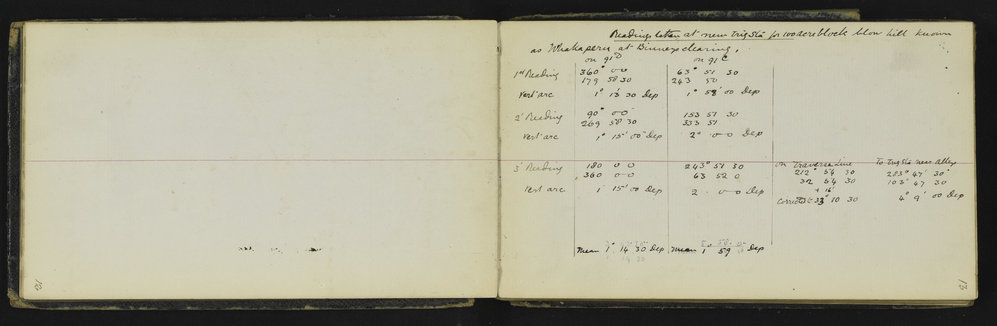 Readings taken at new Trig Stn for 100 acre block blow hill known
as Whakaperu at Binneys clearing,
on 91ᴰ on 91ᶜ
1st Reading 360° 0 0 63° 51 30
179 58 30 243 50
Vert arc 1° 13 30 Dep 1° 58' 00 Dep
2' Reading 90° 0 0 153 51 30
269 58 30 333 51
Vert arc 1° 15' 00" Dep 2° 0 0 Dep
3' Reading 180 0 0 243° 51 30 on Traverse Line To Trig Stn near
360 0 0 63 52 0 212° 54 30 283° 47' 30"
32 54 30 103° 47 30
Vert arc 1 15' 00 Dep 2 0 0 Dep + 16'
Corrected 33° 10 30 4° 9' 00 Dep
Mean 1° 14 30 Dep Mean 1 59 Dep
12
13